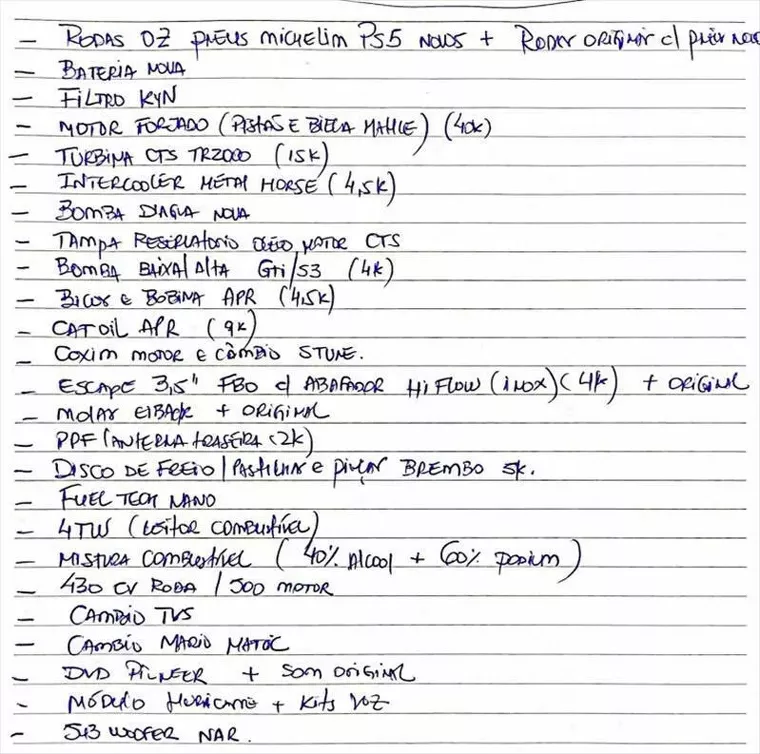 - RODAS OZ PNEUS MICHELIM PS5 NOVOS + RODAS ORIGINAIS c/ PNEUS NOVOS
- BATERIA NOVA
- FILTRO KYN
- MOTOR FORJADO (PISTAS E BIELA MAHLE) (40K)
- TURBINA CTS TR2000 (15K)
- INTERCOOLER METAL HORSE (4,5K)
- BOMBA DIAGUA NOVA
- TAMPA RESERVATORIO OLEO MOTOR CTS
- BOMBA BAIXA/ALTA Gti/S3 (4K)
- BICOS e BOBINA APR (4,5K)
- CATOIL APR (9K)
- COXIM MOTOR E CÂMBIO STUNE.
- ESCAPE 3,5" FBO c/ ABAFADOR Hi FLOW (INOX) (4K) + ORIGINAL
- MOLAS EIBACK + ORIGINAL
- PPF LANTERNA TRASEIRA (2K)
- DISCO DE FREIO / PASTILHAS e PINÇAS BREMBO 5K.
- FUEL TECH NANO
- 4TW (LEITOR COMBUSTÍVEL)
- MISTURA COMBUSTÍVEL (40% Alcool + 60% PODIUM)
- 430 CV RODA / 500 MOTOR
- CAMBIO TVS
- CAMBIO MARIO MATOC
- DVD PIONEER + SOM ORIGINAL
- MÓDULO HURICANE + Kits VOZ
- WOOFER NAR.